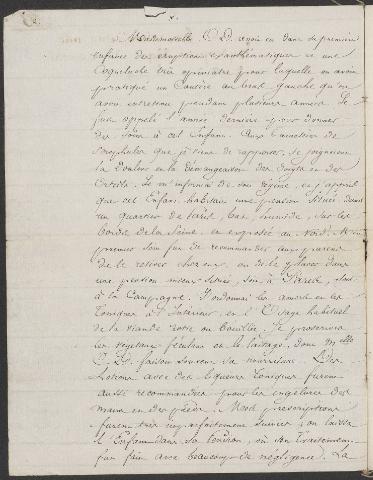 Mademoiselle C. D. avoit eu dans sa première
enfance des éruptions exanthématiques et une
Coqueluche très opiniâtre pour laquelle on avoit
pratiqué un Cautère au bras gauche qu'on
avoit entretenu pendant plusieurs années. Je
fus appelé l'année dernière pour donner
des soins à cet Enfant. Aux Caractères de
Scrophules que je viens de rapporter, se joignoient
la douleur et la démangeaison des doigts et des
Orteils. Je m'informai de son régime, et j'appris
que cet Enfant habitait une pension située dans
un quartier de bas, humide, sur les
bords de la Seine et exposée au Nord. Mon
premier soin fut de recommander aux parens
de la retirer chez eux, ou de la placer dans
une pension mieux située, soit à Paris, soit
à la Campagne. J'ordonnai les amers et les
toniques à l'intérieur, et l'Usage habituel
de la viande rotie ou bouillie. Je proscrivis
les végétaux féculens et le laitage, dont Melle
C. D. faisait souvent sa nourriture. Des
lotions avec des liqueurs toniques furent
aussi recommandées pour les engelures des
mains et des pieds. Mes prescriptions
furent très imparfaitement suivies; on laissa
l'Enfant dans sa Pension, où son traitement
fut fait avec beaucoup de négligence. La